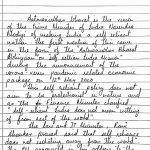 Aatmanirbhar Bharat is the vision
of the Prime Minister of India Narendra
Modi of making India a self reliant
nation. The first mention of this came
in the form of the Aatmanirbhar Bharat
Abhiyan or Self reliant India Mission
during the announcement of the
corona virus pandemic related economic
package 12th May 2020
This self reliant policy does not
aim to be protectionist in nature and
as the Finance Minister clarified
self reliant India does not mean cutting
off from rest of the world
The law and IT Minister
said that self reliance
does not isolating away from the world